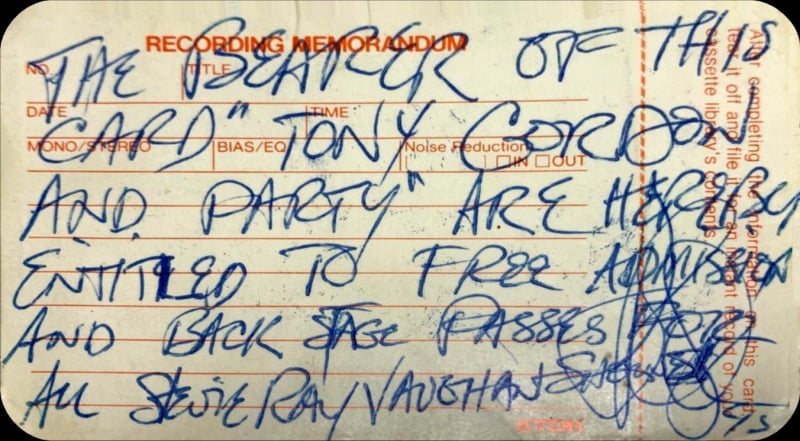 RECORDING MEMORANDUM
NO. TITLE
THE BEARER OF THIS
DATE TIME
CARD" TONY GORDON
MONO/STEREO BIAS/EQ Noise Reduction
IN OUT
AND PARTY" ARE HEREBY
ENTITLED TO FREE ADMISSION
AND BACK STAGE PASSES FOR
ALL STEVIE RAY VAUGHAN
After completing the information on this card
tear it off and file it for an instant record of your
cassette library's contents